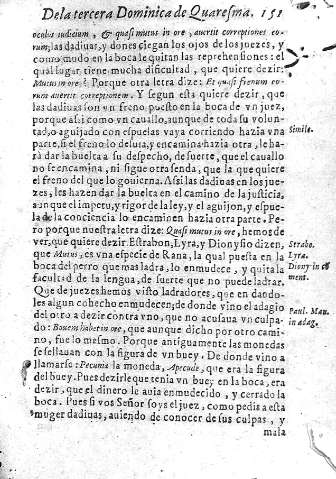 De la tercera Dominica de Quaresma. 151
oculos iudicium, & quasi mutus in ore, auertit correptiones eo-
rum; las dadiuas, y dones ciegan los ojos de los juezes, y
como mudo en la boca le quitan las reprehensiones: el
qual lugar tiene mucha dificultad, que quiere dezir:
Mutus in ore? Porque otra letra dize: Et quasi frenum
eorum auertit correptionem. Y segun esta quiere dezir, que
las dadiuas son vn freno puesto en la boca de vn juez,
porque assi como vn cauallo, aunque de toda su volun-
tad, o aguijado con espuelas vaya corriendo hazia vna
parte, si el freno lo desuia, y encamina hazia otra, le ha-
rà dar la buelta a su despecho, de suerte, que el cauallo
no se encamina, ni sigue otra senda, que la que quiere
el freno del que lo gouierna. Assi las dadiuas en los jue-
zes, les hazen dar la buelta en el camino de la justicia,
aunque el impetu, y rigor de la ley, y el aguijon, y espue-
la de la conciencia lo encaminen hazia otra parte. Pe-
ro porque nuestra letra dize: Quasi mutus in ore, hemos de
ver, que quiere dezir. Estrabon, Lyra, y Dionysio dizen,
que Mutus, es vna especie de Rana, la qual puesta en la
boca del perro que mas ladra, lo enmudece, y quita la
facultad de la lengua, de suerte que no puede ladrar.
Que de juezes hemos visto ladradores, que en dando-
les algun cohecho enmudecen; de donde vino el adagio
del otro a dezir contra vno, que no acusaua vn culpa-
do: Bouem habet in ore, que aunque dicho por otro cami-
no, fue lo mesmo. Porque antiguamente las monedas
se sellauan con la figura de vn buey. De donde vino a
llamarse: Pecunia la moneda, A pecude, que era la figura
del buey. Pues dezirle que tenia vn buey en la boca, era
dezir, que el dinero le auia enmudecido, y cerrado la
boca. Pues si vos Señor soys el juez, como pedis a esta
muger dadiuas, auiendo de conocer de sus culpas, y
mala
Simile.
Strabo.
Lyra.
Diony in co
ment.
Paul. Man.
in adag.